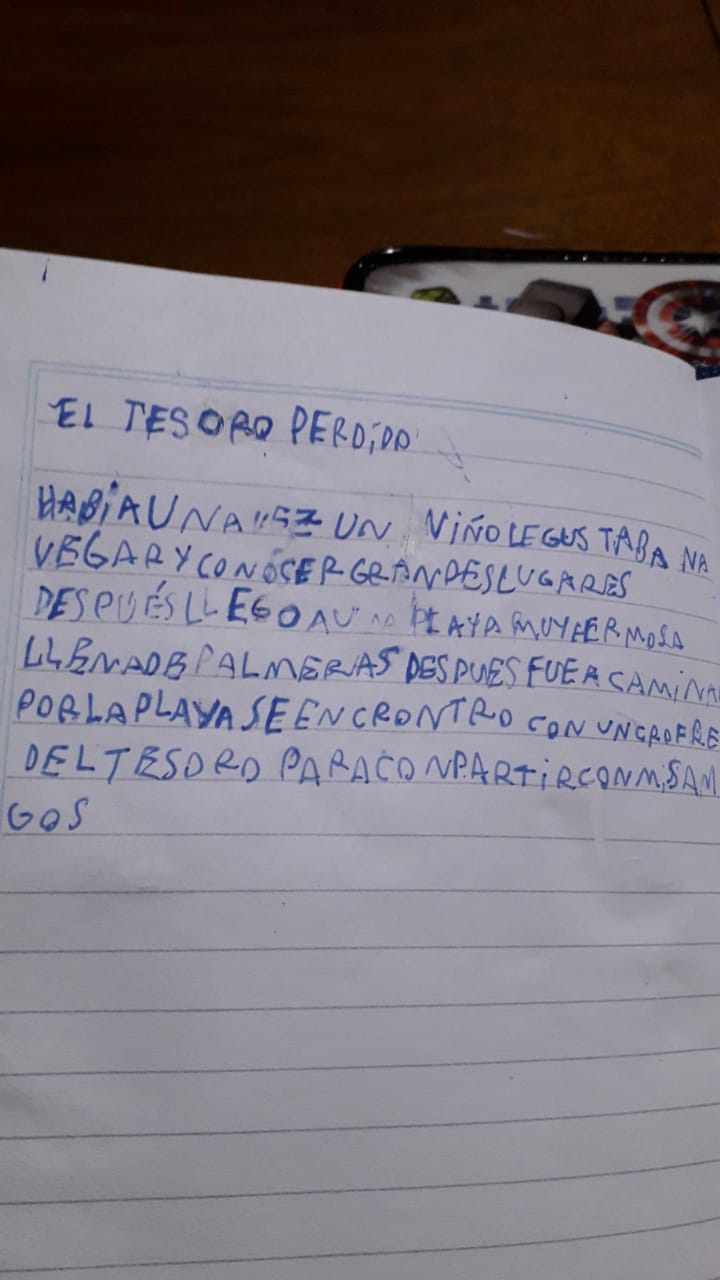 EL TESORO PERDIDO
HABÍA UNA VEZ UN NIÑO LE GUSTABA NA
VEGAR Y CONOSER GRANDES LUGARES
DESPUÉS LLEGO A UNA PLAYA MUY HERMOSA
LLENA DE PALMERAS DESPUES FUE A CAMINA
POR LA PLAYA SE ENCRONTRO CON UN CROFRE
DEL TESORO PARA CONPARTIR CON MIS AMI
GOS